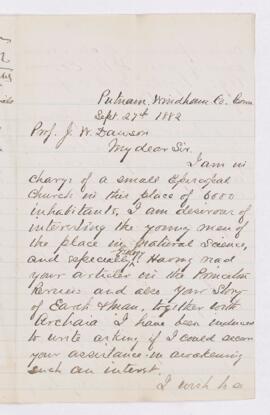 Putnam, Windham Co. Conn
Sept. 27th 1882
Prof. J. W. Dawson
My dear Sir.
I am in
charge of a small Episcopal
Church in this place of 6000
inhabitants, I am desirous of
interesting the young men of
the place in Natural Science,
and especially Having read
your articles in the Princeton
Review and also your Story
of Earth & Man, together with
Archaia I have been induced
to write asking if I could
your assistance in awakening
such an interest.
I wish to